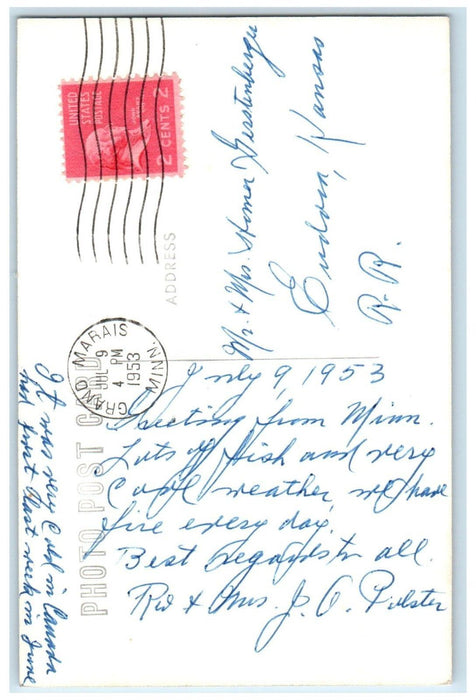 UNITED
STATES
POSTAGE
2 CENTS 2
ADDRESS
Mr. & Mrs. Homer Gerstenberger
Eudora, Kansas
R.R.
GRAND MARAIS
JUL 9
4 PM
1953
MINN.
PHOTO POST CARD
July 9, 1953
Greeting from Minn.
Lots of fish and very
Cool weather, we have
fire every day.
Best regards to all.
Rev & Mrs. J. O. Pulster
It was very Cold in Canada
had frost last week in June